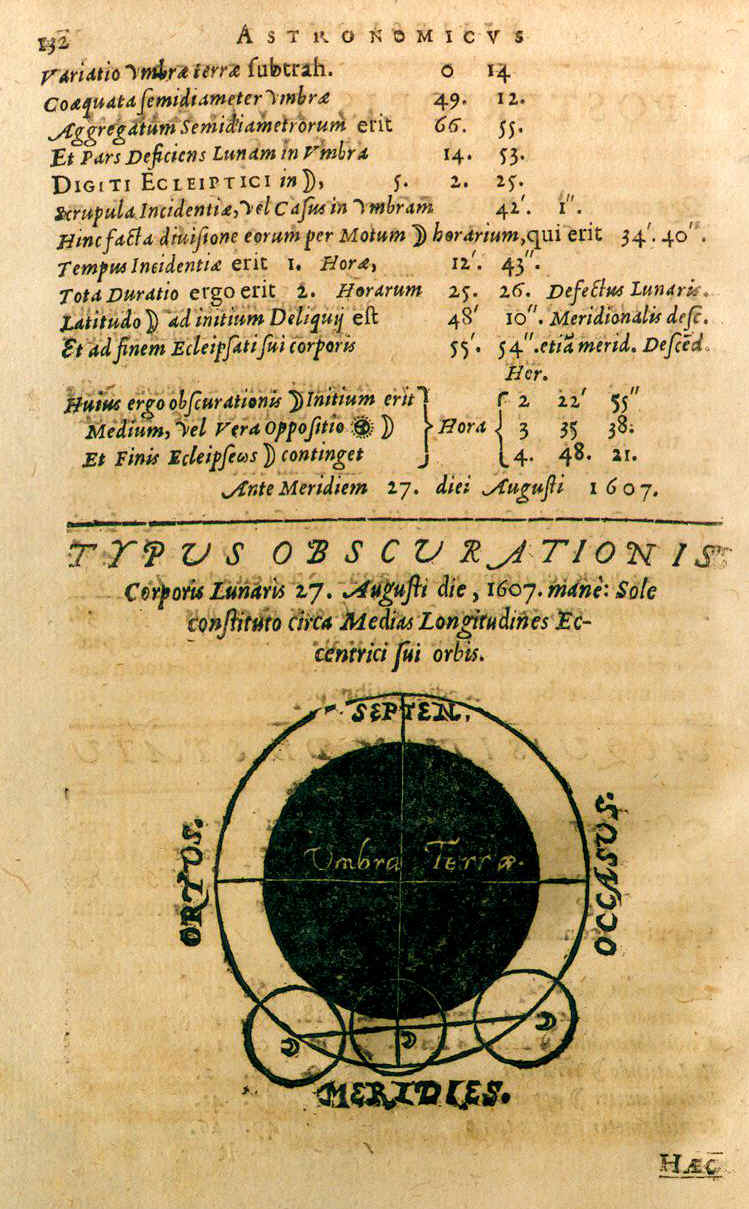 132 ASTRONOMICVS
Variatio Vmbræ terræ subtrah. 0 14
Coæquata semidiameter Vmbræ 49. 12.
Aggregatum Semidiametrorum erit 66. 55.
Et Pars Deficiens Lunam in Vmbra 14. 53.
DIGITI ECLEIPTICI in ☽, 5. 2. 25.
Scrupula Incidentiæ, Vel Casus in Vmbram 42′. 1″.
Hinc facta diuisione eorum per Motum ☽ horarium, qui erit 34′. 40″.
Tempus Incidentiæ erit 1. Horæ, 12′. 43″.
Tota Duratio ergo erit 2. Horarum 25. 26. Defectus Lunaris.
Latitudo ☽ ad initium Deliquij est 48′ 10″. Meridionalis desc.
Et ad finem Ecleipsati sui corporis 55′. 54″. etiã merid. Descẽd.
Hor.
Huius ergo obscurationis ☽ Initium erit 2 22′ 55″
Medium, Vel Vera Oppositio ☽ Hora 3 35 38.
Et Finis Ecleipseως ☽ continget 4. 48. 21.
Ante Meridiem 27. diei Augusti 1607.
TYPUS OBSCURATIONIS
Corporis Lunaris 27. Augusti die, 1607. manè: Sole
constituto circa Medias Longitudines Ec-
centrici sui orbis.
SEPTEN.
ORTUS.
Umbra Terræ.
OCCASUS.
MERIDIES.
HÆC